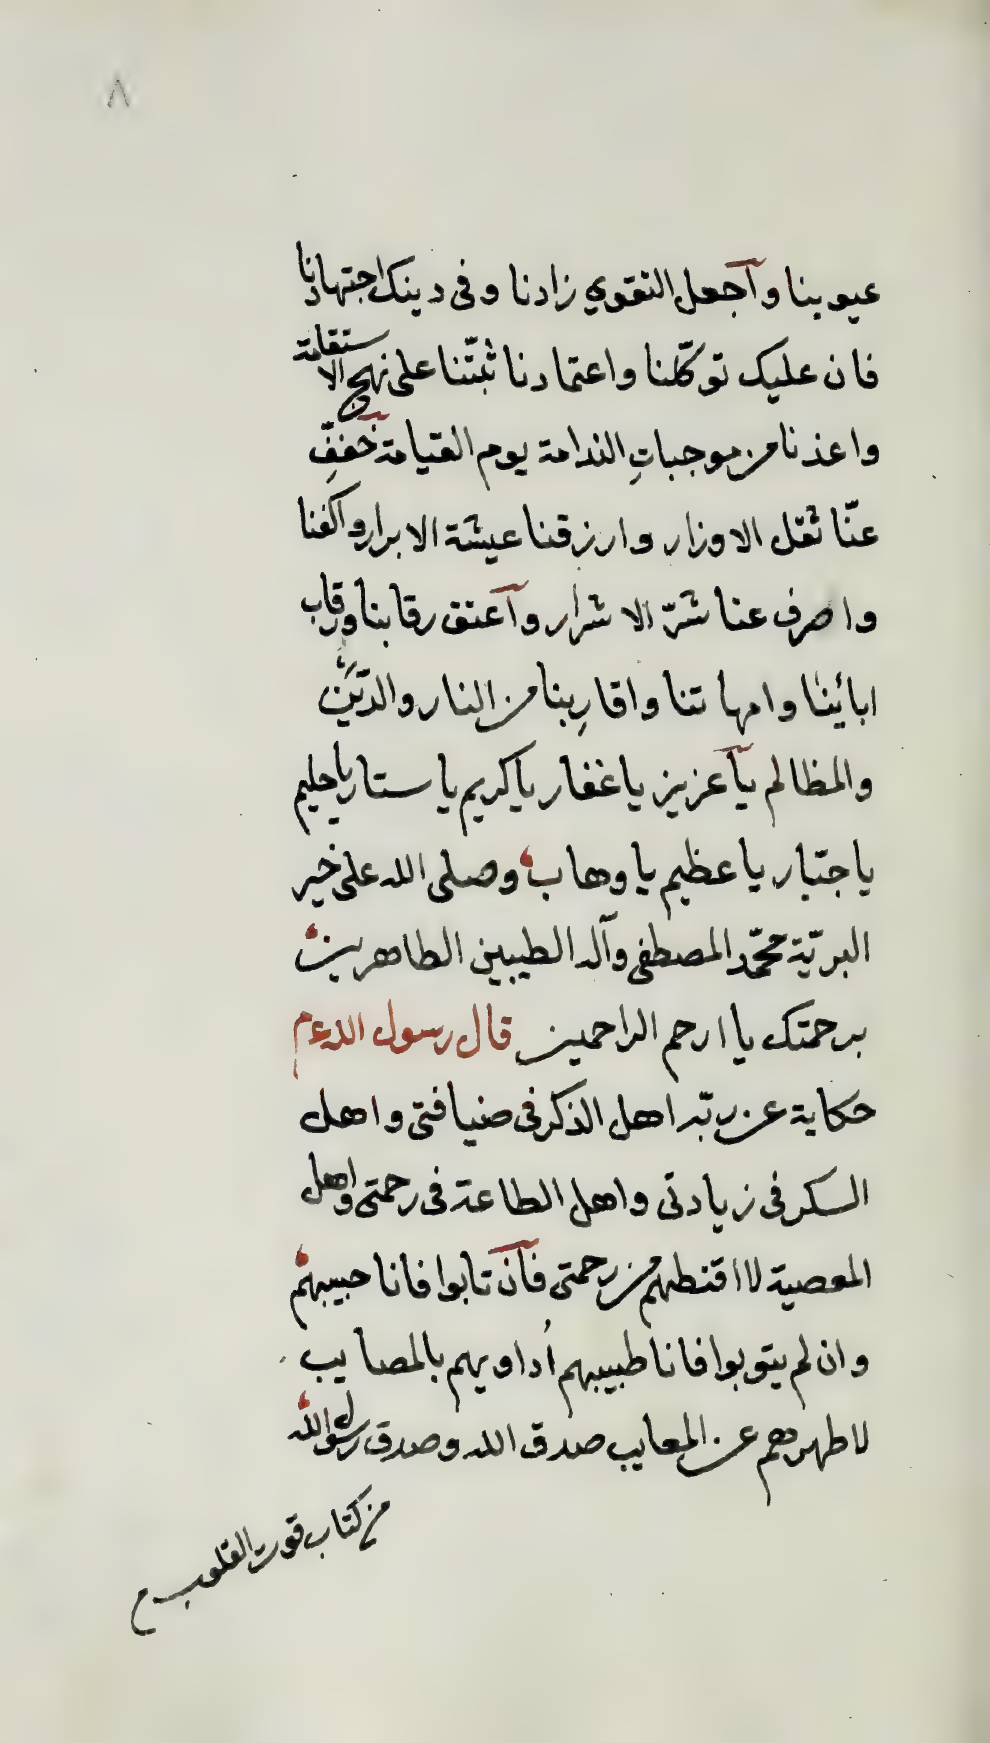 ٨
عيوبنا وآجعل التقوي زادنا وفى دينك اجتهادنا
فان عليك توكّلنا واعتمادنا ثبّتنا على نهج الاستقامة
واعذنا من موجباتِ الندامة يوم القيامة خففّ
عنّا ثقل الاوزار وارزقنا عيشة الابرار واكفنا
واصرف عنا شرّ الاشرار وآعتق رقابنا ورقاب
ابائينا وامهاتنا واقارِبنا من النار والدّيْنِ
والمظالم يآ عزيز يا غفار يا كريم يا ستار يا حليم
يا جبّار يا عظيم يا وهاب وصلى الله على خير
البريّة محمّد المصطفى وآله الطيبين الطاهرين
برحمتك يا ارحم الراحمين قال رسول الله عم
حكاية عن ربّه اهل الذكر فى ضيافتى واهل
السكر فى زيادتى واهل الطاعة فى رحمتى واهل
المعصية لا اقنطهم من رحمتى فآن تابوا فانا حبيبهم
وان لم يتوبوا فانا طبيبهم أداويهم بالمصايب
لاطهرهم عن المعايب صدق الله وصدق رسول الله
من كتاب قوت القلوب م